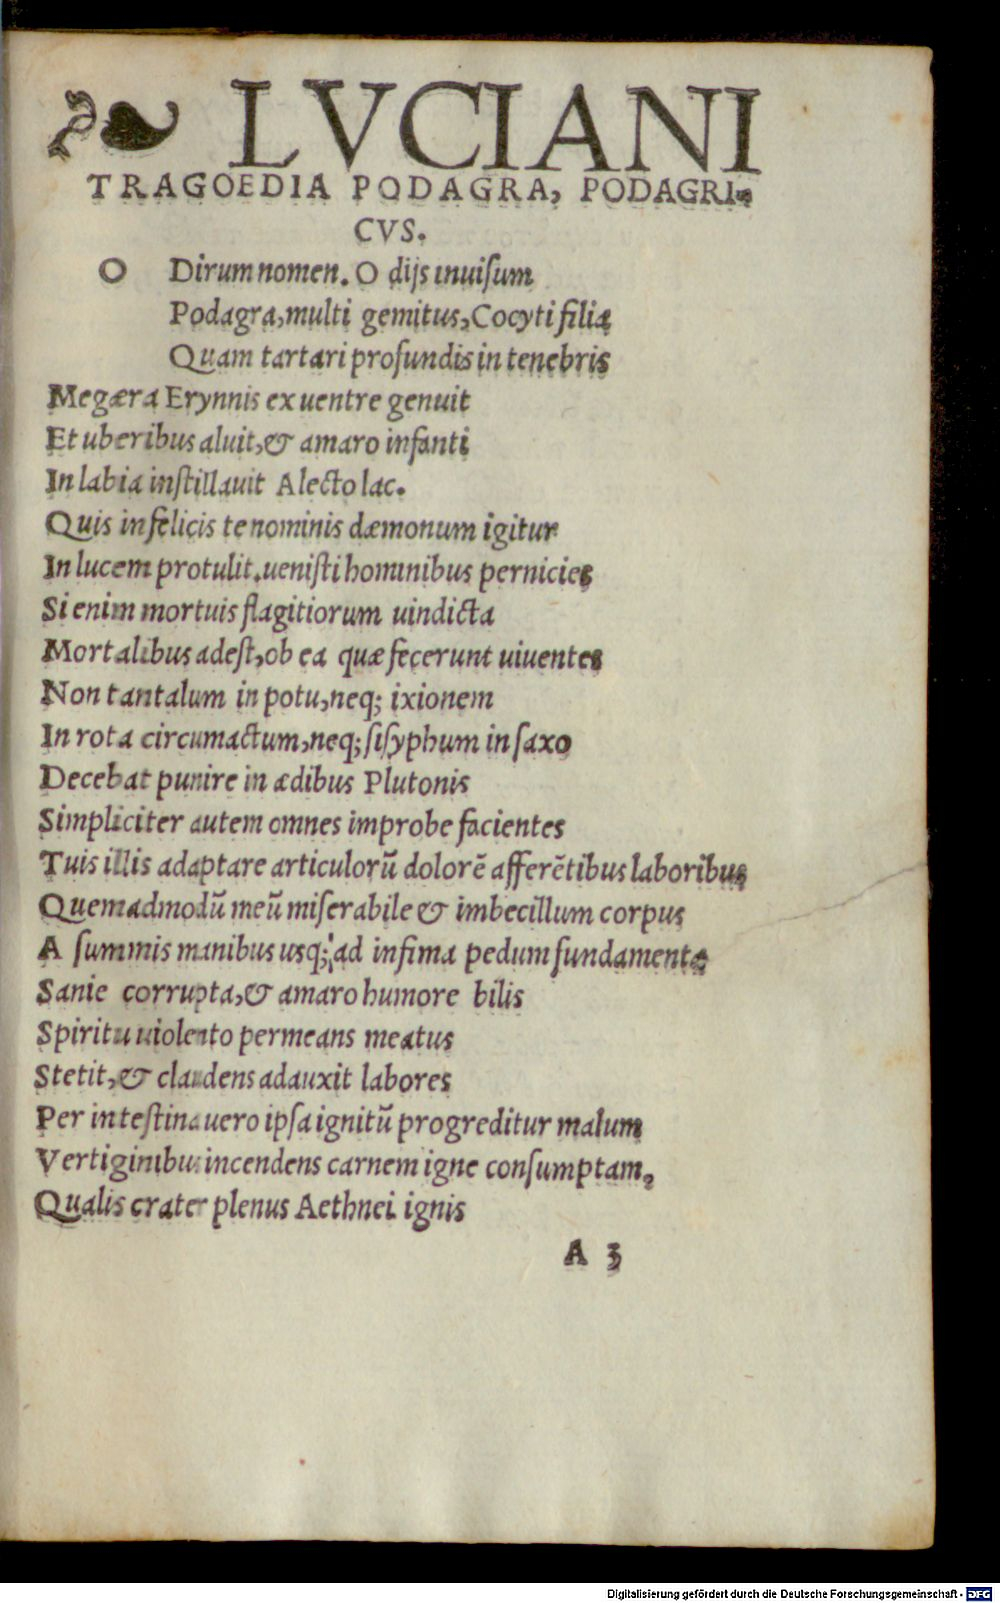 ❧ LVCIANI
TRAGOEDIA PODAGRA, PODAGRI-
CVS.
O Dirum nomen. O dijs inuiſum
Podagra, multi gemitus, Cocyti filia
Quam tartari profundis in tenebris
Megæra Erynnis ex uentre genuit
Et uberibus aluit, & amaro infanti
In labia inſtillauit Alecto lac.
Quis infelicis te nominis dæmonum igitur
In lucem protulit. ueniſti hominibus pernicies
Si enim mortuis flagitiorum uindicta
Mortalibus adeſt, ob ea quæ fecerunt uiuentes
Non tantalum in potu, neq; ixionem
In rota circumactum, neq; ſiſyphum in ſaxo
Decebat punire in ædibus Plutonis
Simpliciter autem omnes improbe facientes
Tuis illis adaptare articulorū dolorē afferētibus laboribus
Quemadmodū meū miſerabile & imbecillum corpus
A ſummis manibus usq; ad infima pedum fundamenta
Sanie corrupta, & amaro humore bilis
Spiritu uiolento permeans meatus
Stetit, & claudens adauxit labores
Per inteſtina uero ipſa ignitū progreditur malum
Vertiginibus incendens carnem igne conſumptam,
Qualis crater plenus Aethnei ignis
A 3
Digitalisierung gefördert durch die Deutsche Forschungsgemeinschaft - DFG